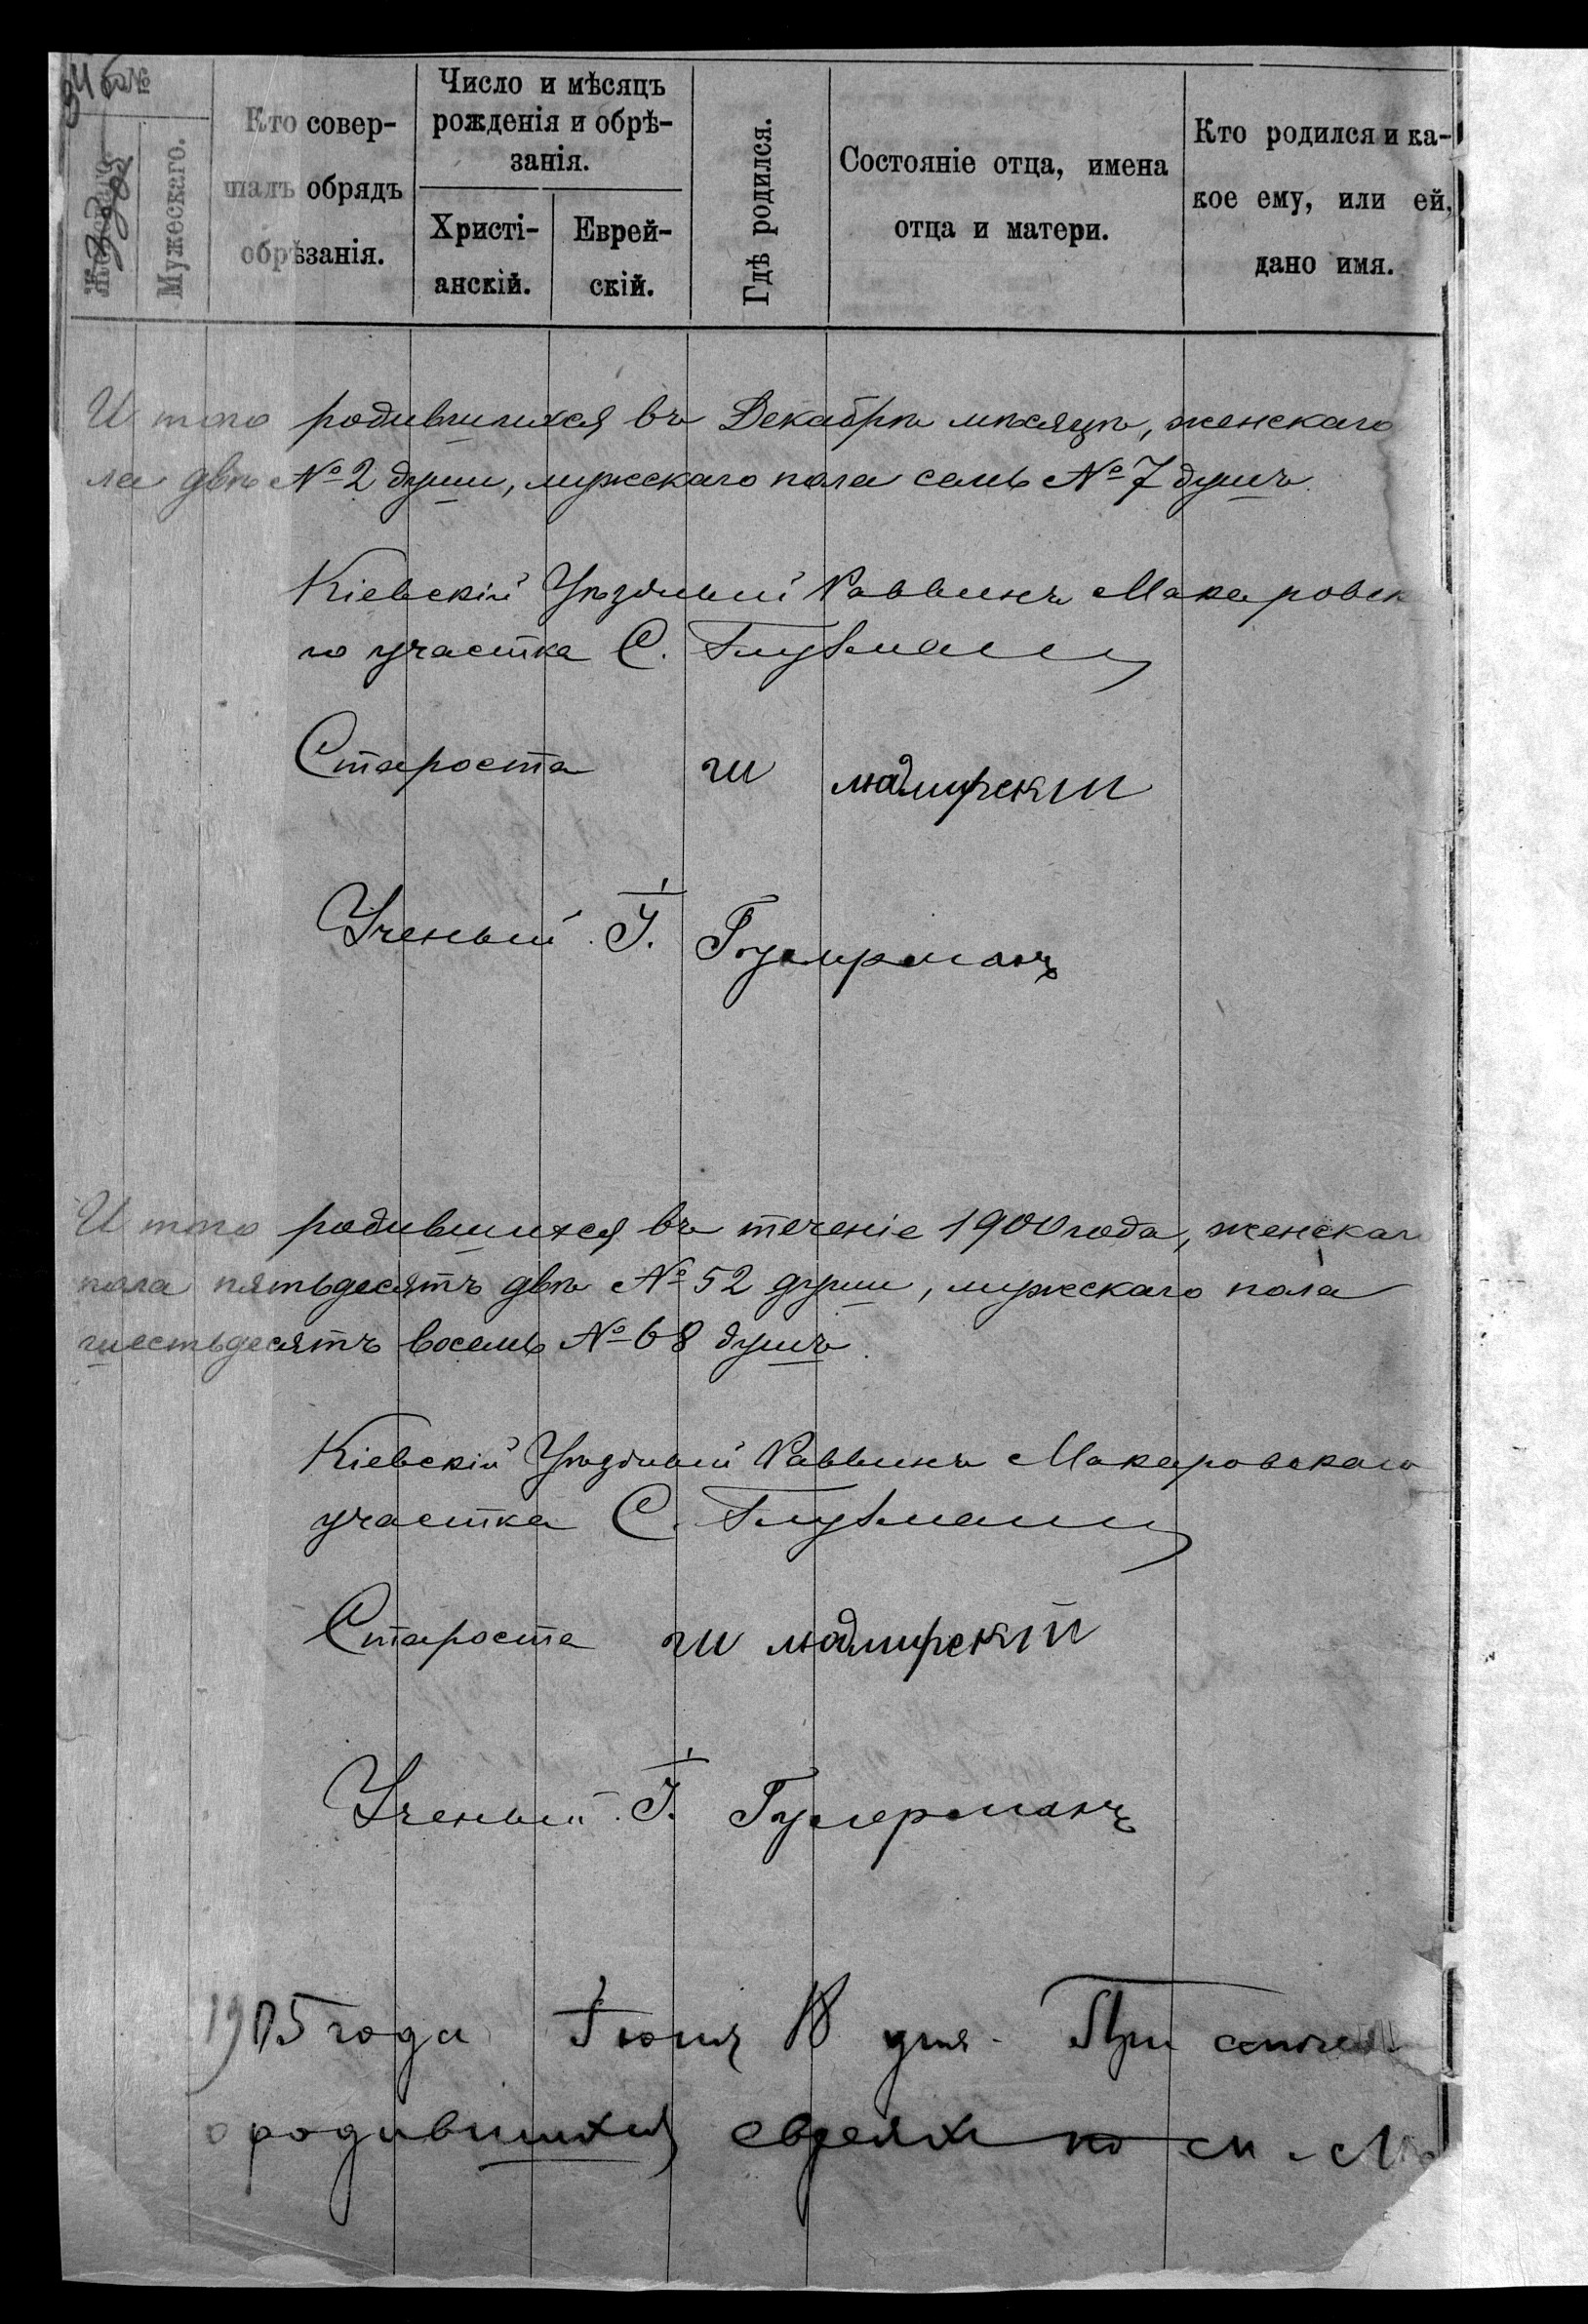 №
Женскаго.
Мужескаго.
Кто совер-
шалъ обрядъ
обрѣзанія.
Число и мѣсяцъ
рожденія и обрѣ-
занія.
Христі-
анскій.
Еврей-
скій.
Гдѣ родился.
Состояніе отца, имена
отца и матери.
Кто родился и ка-
кое ему, или ей,
дано имя.
И того родившихся въ Декабрѣ мѣсяцѣ, женскаго
ла двѣ №2 души, мужескаго пола семь №7 душъ.
Кіевскій Уѣздный Раввинъ Макаровск
го участка С.
Староста Ш людмирский
Ученый І.
И того родившихся въ теченіе 1900 года, женскаг
пола пятьдесятъ двѣ №52 души, мужескаго пола
шестьдесятъ восемь №68 душъ.
Кіевскій Уѣздный Раввинъ Макаровскаго
участка С.
Староста Ш людмирскій
Ученый І.
1905 года Іюня 18 дня. При
о родившихся евреяхъ по м. М